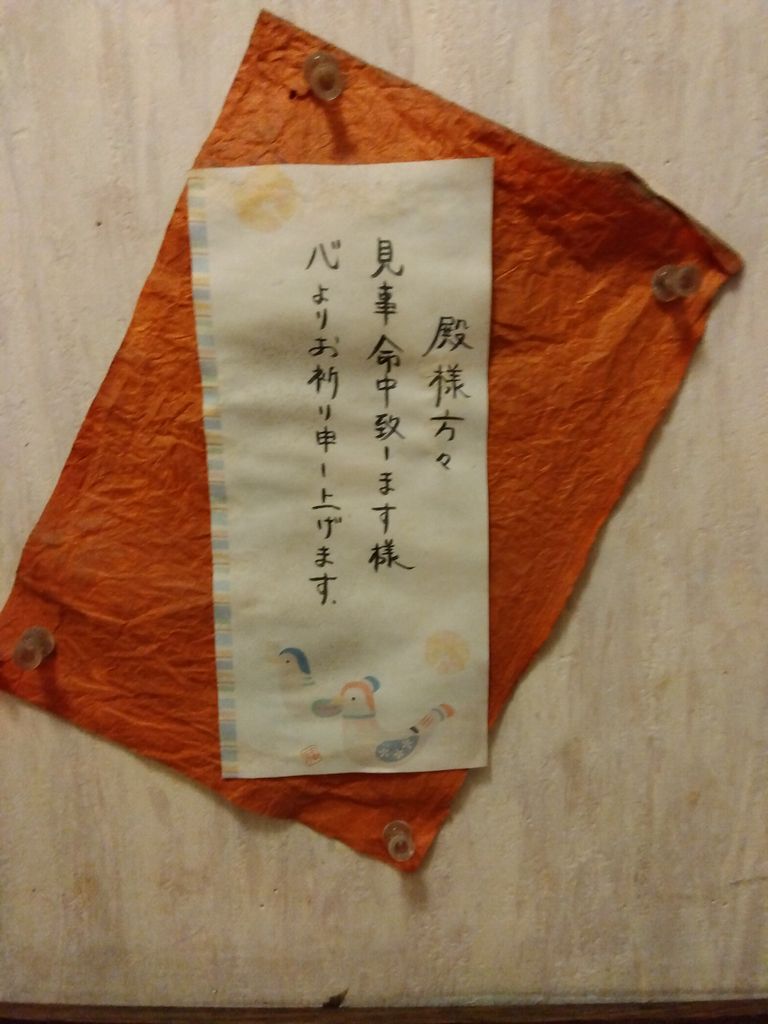 殿様方々
見事命中致します様
心よりお祈り申し上げます.